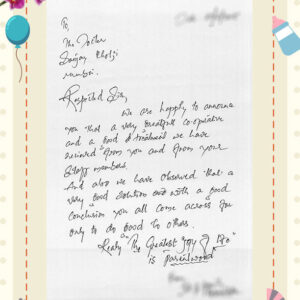 To,
The Doctor
Sanjay
Mumbai.
Respected Sir,
We are happy to announce
you that a very co-operative
and a Good treatment we have
recieved from you and from your
Staff members.
And also we have observed that a
very Good Solution and with a Good
conclusion you all come across for
only to do Good to others.
Realy "The Greatest Joy of life"
is Parenthood"